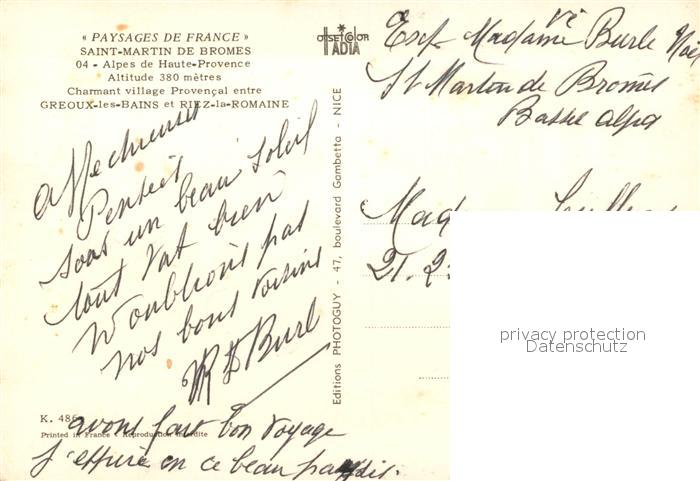 « PAYSAGES DE FRANCE »
SAINT-MARTIN DE BROMES
04 - Alpes de Haute-Provence
Altitude 380 mètres
Charmant village Provençal entre
GREOUX-les-BAINS et RIEZ-la-ROMAINE
OFFSET COLOR
IADIA
Exp Madame Vve Burle
St Martin de Bromes
Basse Alpes
affectueuses
Pensées
sous un beau soleil
tout vat bien
N'oublions pas
nos bons voisins
Burle
Editions PHOTOGUY - 47, boulevard Gambetta - NICE
Mad
21. 2
privacy protection
Datenschutz
K. 486
Printed in France - Reproduction interdite
avons fait bon voyage
en ce beau